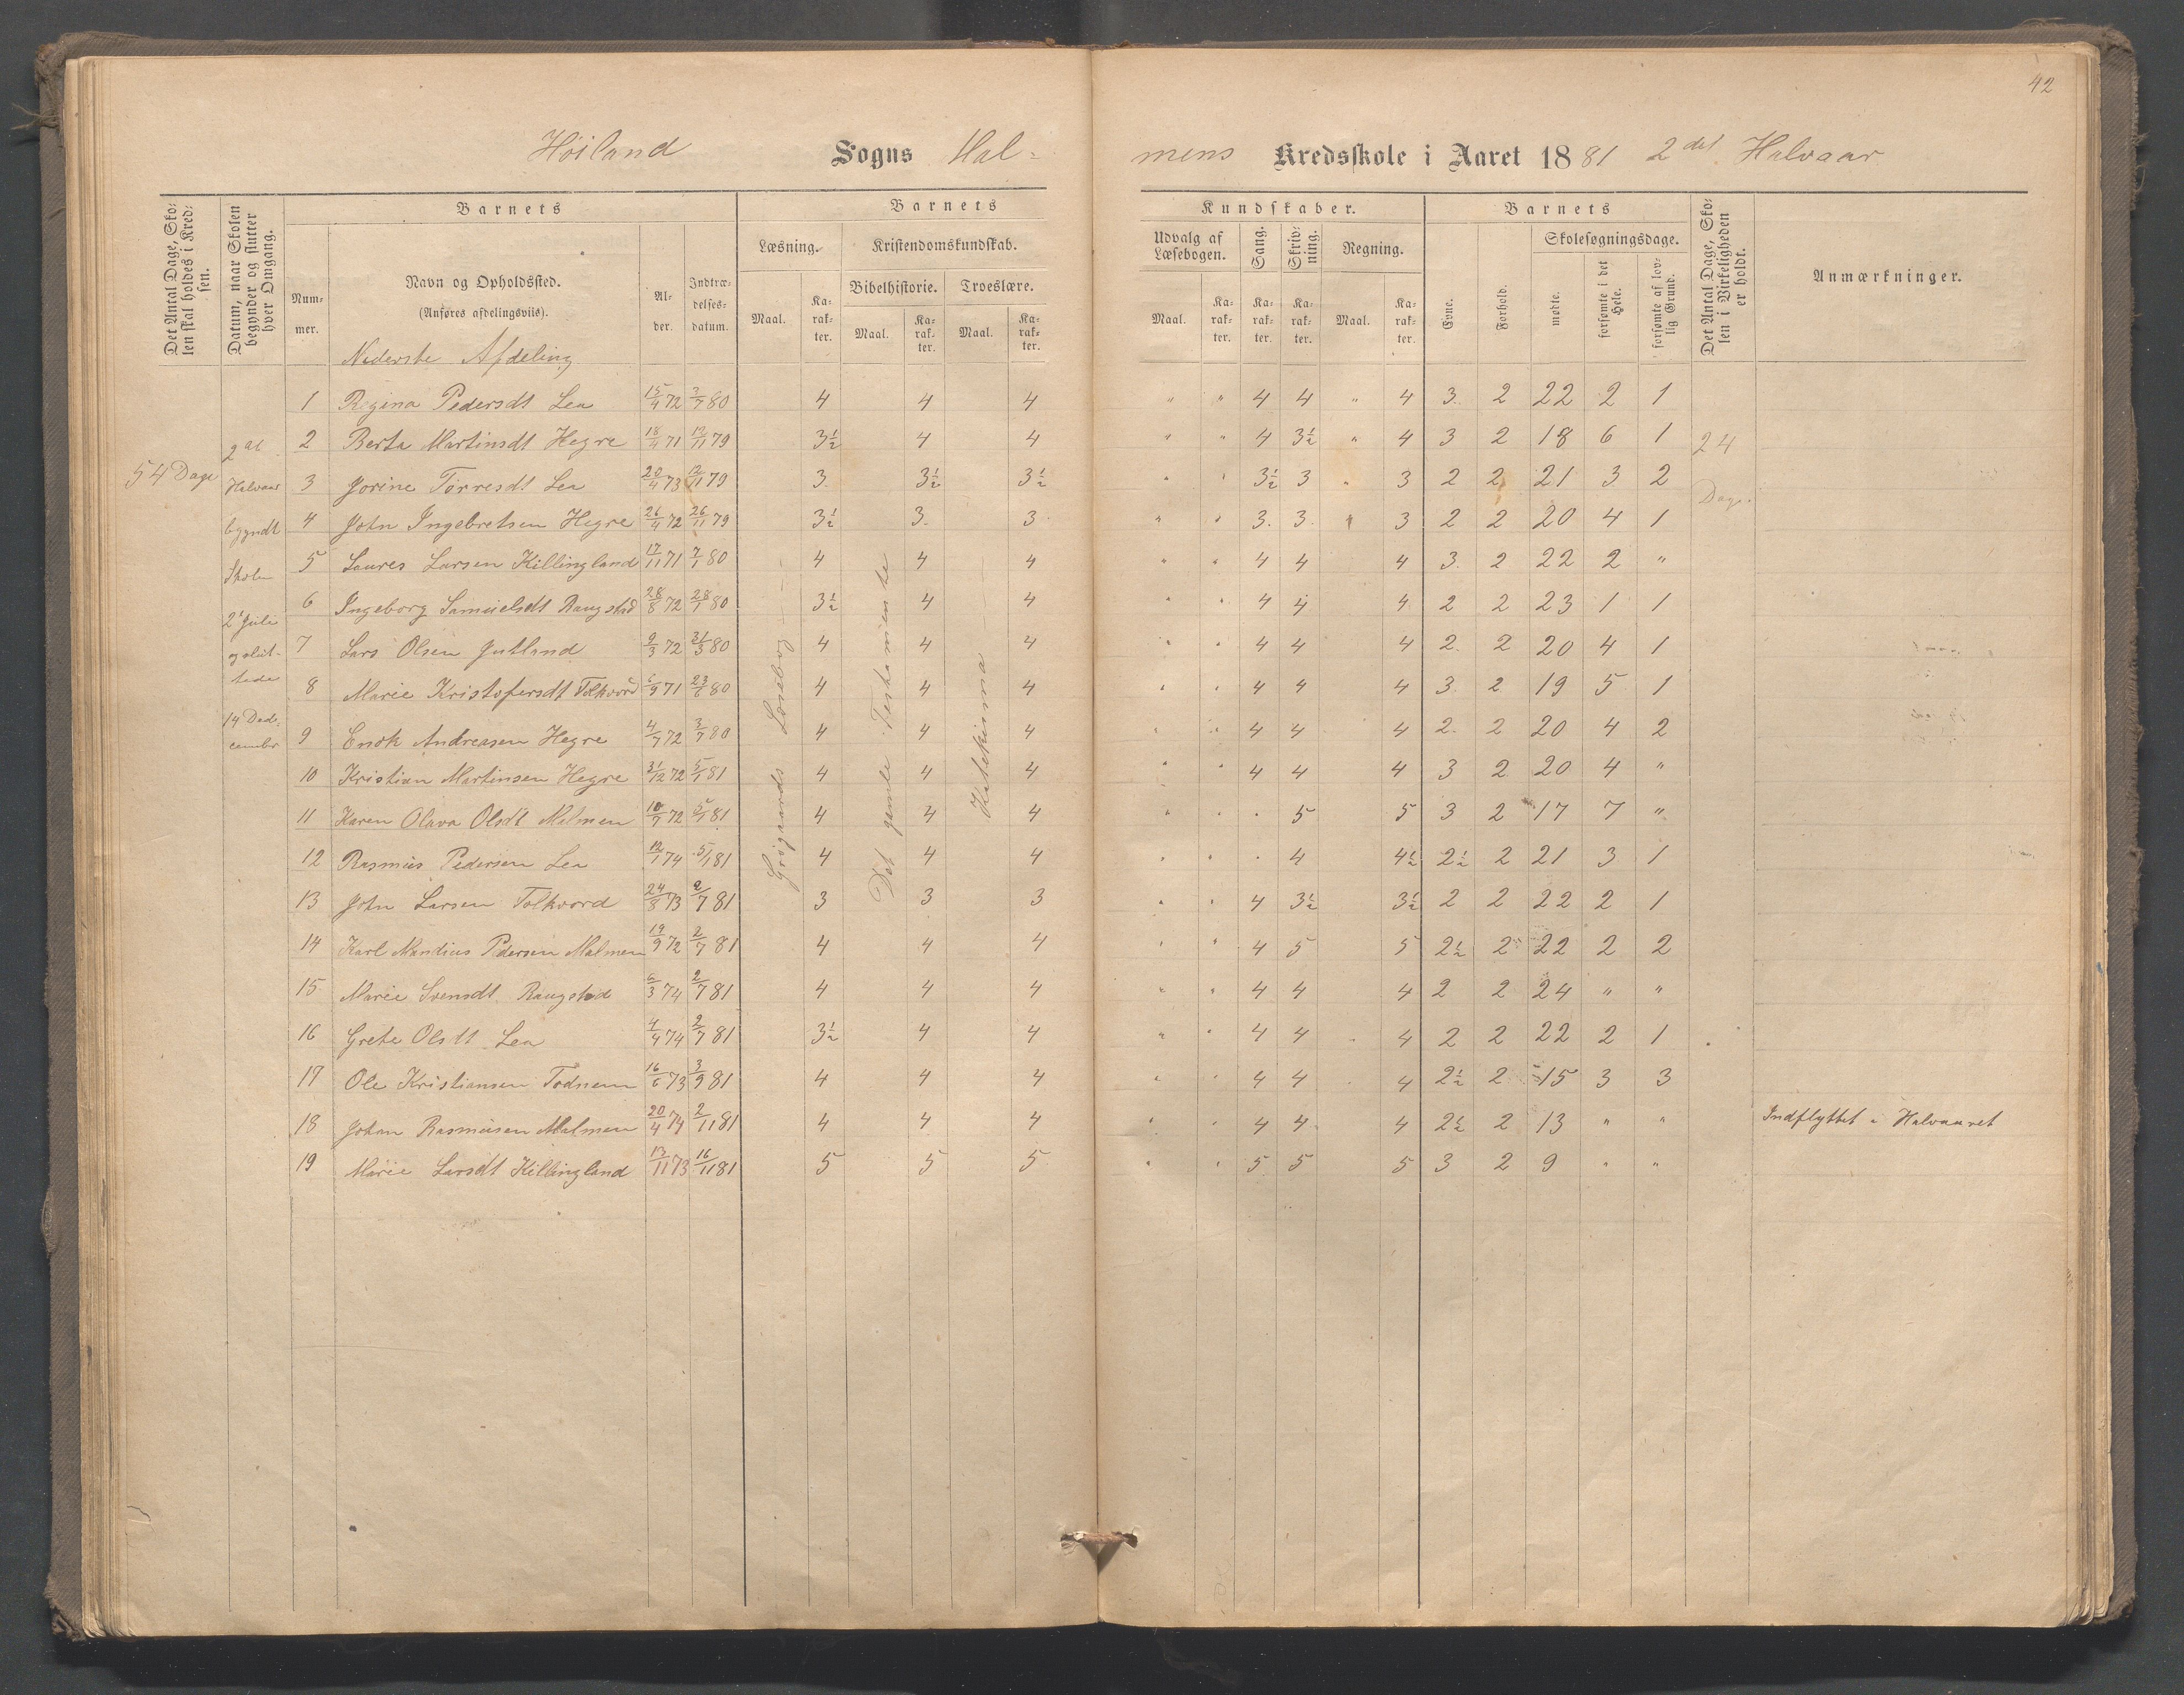 42
Höiland Sogns Hal-
mens Kredsskole i Aaret 1881 2det Halvaar
Det Antal Dage, Skolen skal holdes i Kredsen.
Datum, naar Skolen begynder og slutter hver Omgang.
Barnets
Nummer.
Navn og Opholdssted.
(Anføres afdelingsviis).
Alder.
Indtrædelsesdatum.
Barnets
Læsning.
Maal. Karakter.
Kristendomskundskab.
Bibelhistorie. Troeslære.
Maal. Karakter. Maal. Karakter.
Kundskaber.
Udvalg af Læsebogen.
Maal. Karakter.
Sang. Karakter.
Skrivning. Karakter.
Regning.
Maal. Karakter.
Barnets
Evne. Forhold.
Skolesøgningsdage.
mødte. forsømte i det Hele. forsømte af lovlig Grund.
Det Antal Dage, Skolen i Virkeligheden er holdt.
Anmærkninger.
Nederste Afdeling
54 Dage
2det
Halvaar
bgyndt
Skolen
2 Juli
og slut-
tede
14 De
cember
Det gamle Testamente
Katekisma
24
Dage.
1 Regina Pedersdt Lea 15/4 72 3/7 80 4 4 4 " " 4 4 " 4 3. 2 22 2 1
2 Berta Martinsdt Hegre 18/11 71 12/11 79 3½ 4 4 " " 4 3½ " 4 3 2 18 6 1
3 Jorine Törresdt Lea 20/4 73 12/11 79 3 3½ 3½ " " 3½ 3 " 3 2 2 21 3 2
4 John Ingebretsen Hegre 26/4 72 26/11 79 3½ 3. 3 " " 3. 3. " 3 2 2 20 4 1
5 Laures Larsen Killingland 17/11 71 7/1 80 4 4 4 " " 4 4 4 3. 2 22 2 "
6 Ingeborg Samuelsdt Raugstad 28/8 72 28/1 80 3½ 4 4 " " 4 4 4 2 2 23 1 1
7 Lars Olsen Jutland 9/3 72 31/3 80 4 4 4 " " 4 4 4 2. 2 20 4 1
8 Marie Kristofersdt Folkvord 6/9 71 23/6 80 4 4 4 " " 4 4 4 3. 2 19 5 1
9 Enok Andreasen Hegre 4/7 72 3/7 80 4 4 4 " " 4 4 4 2. 2 20 4 2
10 Kristian Martinsen Hegre 31/12 72 5/1 81 4 4 4 " " 4 4 4 3 2 20 4 "
11 Karen Olava Olsdt Malmen 10/7 72 5/1 81 4 4 4 " " " 5 5 3 2 17 7 "
12 Rasmus Pedersen Lea 12/1 74 5/1 81 4 4 4 " " " 4 4½ 2½ 2 21 3 1
13 John Larsen Folkvord 24/8 73 2/7 81 3 3 3 " " 4 3½ 3½ 2 2 22 2 1
14 Karl Mandius Pedersen Malmen 19/9 72 2/7 81 4 4 4 " " 4 5 5 2½ 2 22 2 2
15 Marie Svensdt Raugstad 6/3 74 2/7 81 4 4 4 " " 4 4 4 2 2 24 " "
16 Grete Olsdt Lea 4/4 74 2/7 81 3½ 4 4 " " 4 4 4 2 2 22 2 1
17 Ole Kristiansen Todnem 16/6 73 3/9 81 4 4 4 " " 4 4 4 2½ 2 15 3 3
18 Johan Rasmusen Malmen 20/4 74 2/11 81 4 4 4 " " 4 4 4 2½ 2 13 " " Indflyttet i Halvaaret
19 Marie Larsdt Killingland 13/11 73 16/11 81 5 5 5 " " 5 5 5 3 2 9 " "